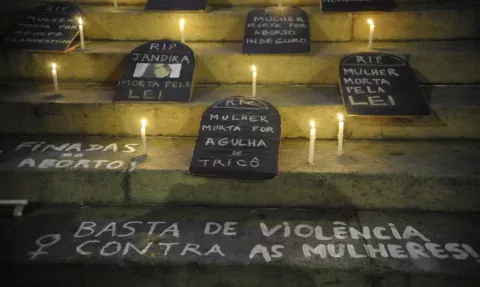 RIP
MULHER
MORTA POR
ABORTO
CLANDESTINO
RIP
MULHER
MORTA POR
ABORTO
INSEGURO
RIP
JANDIRA
MORTA PELA
LEI
RIP
MULHER
MORTA PELA
LEI
RIC
MULHER
MORTA POR
AGULHA
DE
TRICÔ
FINADAS
DO
ABORTO!
BASTA DE VIOLÊNCIA
CONTRA AS MULHERES!